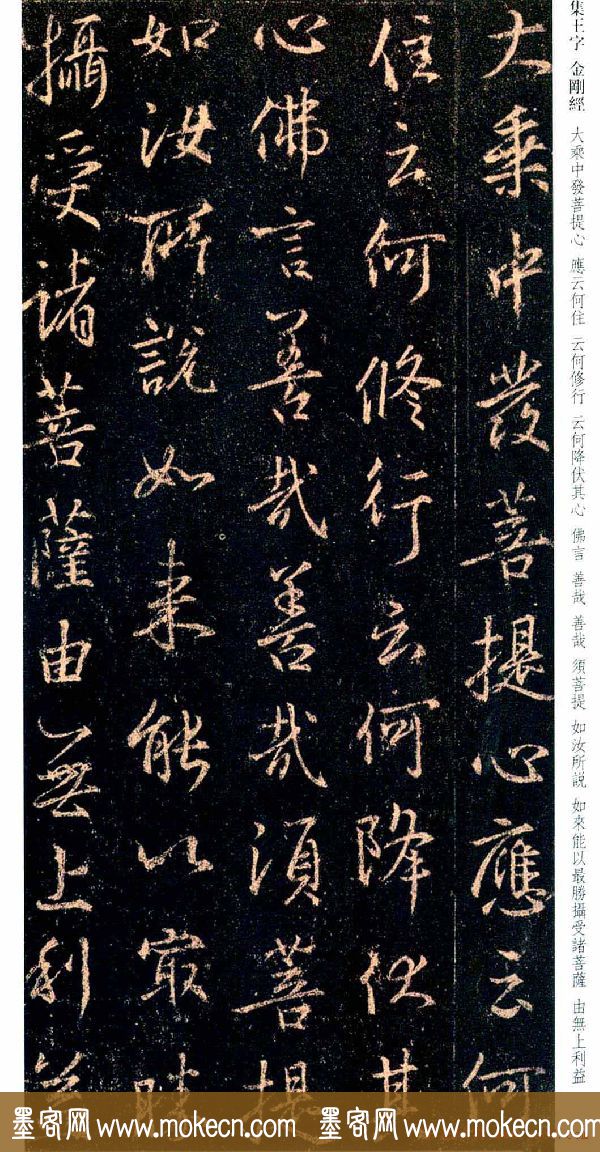 集王字 金剛經 大乘中發菩提心 應云何住 云何修行 云何降伏其心 佛言 善哉 善哉 須菩提 如汝所説 如來能以最勝攝受諸菩薩 由無上利益
大乘中發菩提心應云何
住云何修行云何降伏其
心佛言善哉善哉須菩提
如汝所說如来能以最勝
攝受諸菩薩由無上利益
墨客网 www.mokecn.com 墨客网 www.mokecn.com